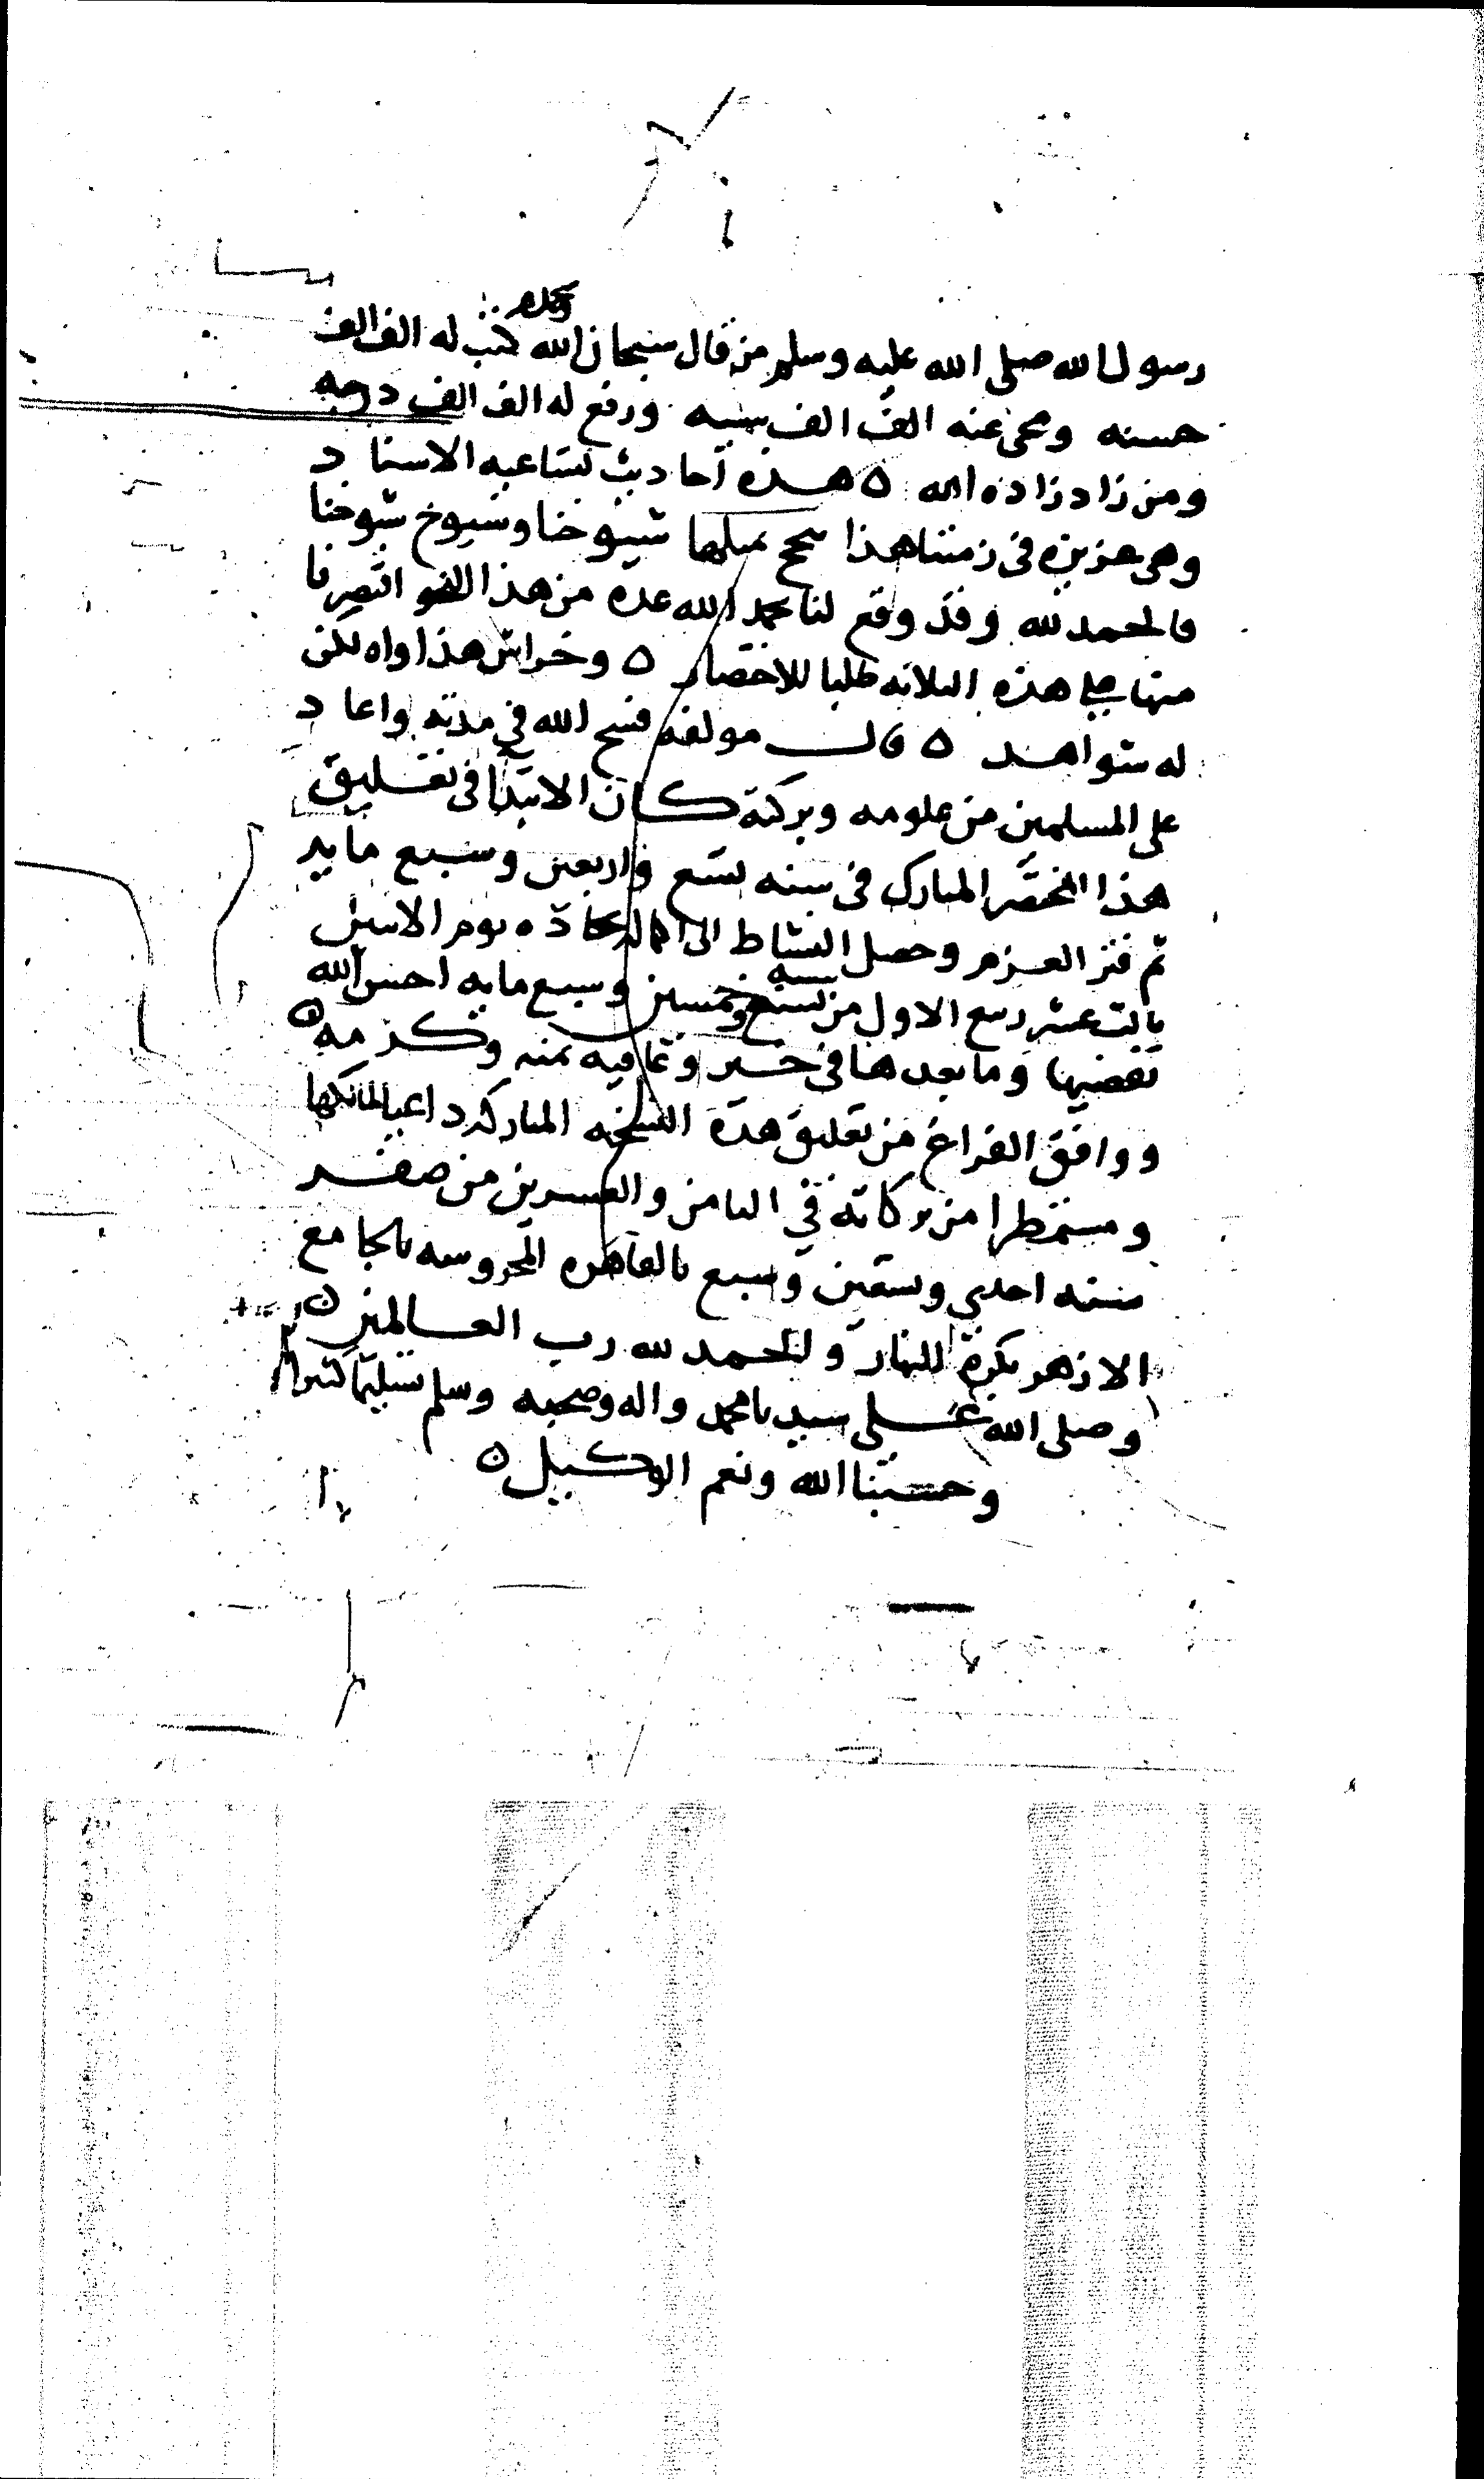 وبحمده
رسول الله صلى الله عليه وسلم من قال سبحان الله كتب له الف الف
حسنه ومحى عنه الف الف سيه ورفع له الف الف درجه
ومن زاد زاده الله ه هذه احاديث تساعيه الاسناد
وهى عزيزه فى زمننا هذا سمح بمثلها شيوخنا وشيوخ شيوخنا
فالحمد لله وقد وقع لنا بحمد الله عده من هذا النحو اقتصرنا
منها على هذه الثلاثه طلبا للاختصار ه وخراش هذا واه لكن
له شواهد ه قال مولفه فسح الله فى مدته واعاد
على المسلمين من علومه وبركته كان الابتدا فى تعليق
هذا المختصر المبارك فى سنه تسع واربعين وسبع مايه
ثم فتر العزم وحصل النشاط الى يوم الاثنين
ثالث عشر ربيع الاول من سنه تسع وخمسين وسبع مايه احسن الله
تقضيها وما بعدها فى خير وعافيه بمنه وكرمه ه
ووافق الفراغ من تعليق هذه النسخه المباركه داعيا لمالكها
ومستمطرا من بركاته في الثامن والعشرين من صفر
سنه احدى وستين وسبع بالقاهره المحروسه بالجامع
الازهر بكرة النهار والحمد لله رب العالمين ه
وصلى الله على سيدنا محمد واله وصحبه وسلم تسليما كثيرا
وحسبنا الله ونعم الوكيل ه